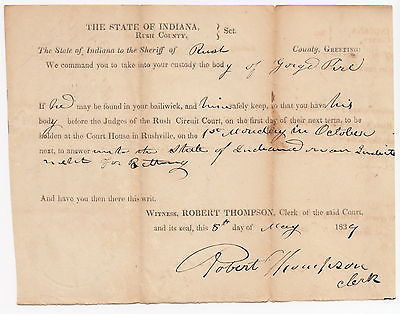 THE STATE OF INDIANA,
RUSH COUNTY, } Sct.
The State of Indiana to the Sheriff of Rush County, GREETING:
We command you to take into your custody the body of
If he may be found in your bailiwick, and him safely keep, so that you have his
body before the Judges of the Rush Circuit Court, on the first day of their next term, to be
holden at the Court House in Rushville, on the 1st Monday in October
next, to answer unto the State of Indiana on an Indict
ment for Betting
And have you then there this writ.
WITNESS, ROBERT THOMPSON, Clerk of the said Court,
and its seal, this 8th day of May 1839
Robert Thompson
Clerk